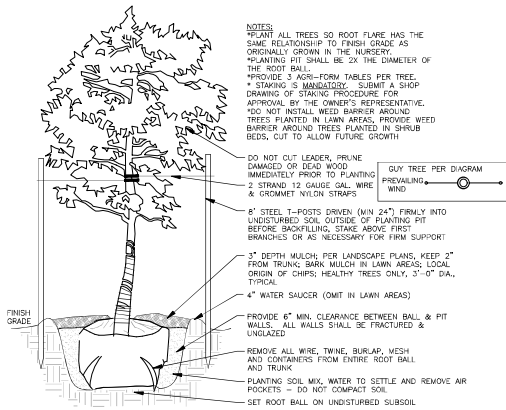 NOTES:
*PLANT ALL TREES SO ROOT FLARE HAS THE
SAME RELATIONSHIP TO FINISH GRADE AS
ORIGINALLY GROWN IN THE NURSERY.
*PLANTING PIT SHALL BE 2X THE DIAMETER OF
THE ROOT BALL.
*PROVIDE 3 AGRI-FORM TABLES PER TREE.
* STAKING IS MANDATORY. SUBMIT A SHOP
DRAWING OF STAKING PROCEDURE FOR
APPROVAL BY THE OWNER'S REPRESENTATIVE.
*DO NOT INSTALL WEED BARRIER AROUND
TREES PLANTED IN LAWN AREAS, PROVIDE WEED
BARRIER AROUND TREES PLANTED IN SHRUB
BEDS, CUT TO ALLOW FUTURE GROWTH
DO NOT CUT LEADER, PRUNE
DAMAGED OR DEAD WOOD
IMMEDIATELY PRIOR TO PLANTING
GUY TREE PER DIAGRAM
PREVAILING
WIND
2 STRAND 12 GAUGE GAL. WIRE
& GROMMET NYLON STRAPS
8' STEEL T-POSTS DRIVEN (MIN 24") FIRMLY INTO
UNDISTURBED SOIL OUTSIDE OF PLANTING PIT
BEFORE BACKFILLING, STAKE ABOVE FIRST
BRANCHES OR AS NECESSARY FOR FIRM SUPPORT
3" DEPTH MULCH; PER LANDSCAPE PLANS, KEEP 2"
FROM TRUNK; BARK MULCH IN LAWN AREAS; LOCAL
ORIGIN OF CHIPS; HEALTHY TREES ONLY, 3'-0" DIA.,
TYPICAL
4" WATER SAUCER (OMIT IN LAWN AREAS)
FINISH
GRADE
PROVIDE 6" MIN. CLEARANCE BETWEEN BALL & PIT
WALLS. ALL WALLS SHALL BE FRACTURED &
UNGLAZED
REMOVE ALL WIRE, TWINE, BURLAP, MESH
AND CONTAINERS FROM ENTIRE ROOT BALL
AND TRUNK
PLANTING SOIL MIX, WATER TO SETTLE AND REMOVE AIR
POCKETS - DO NOT COMPACT SOIL
SET ROOT BALL ON UNDISTURBED SUBSOIL